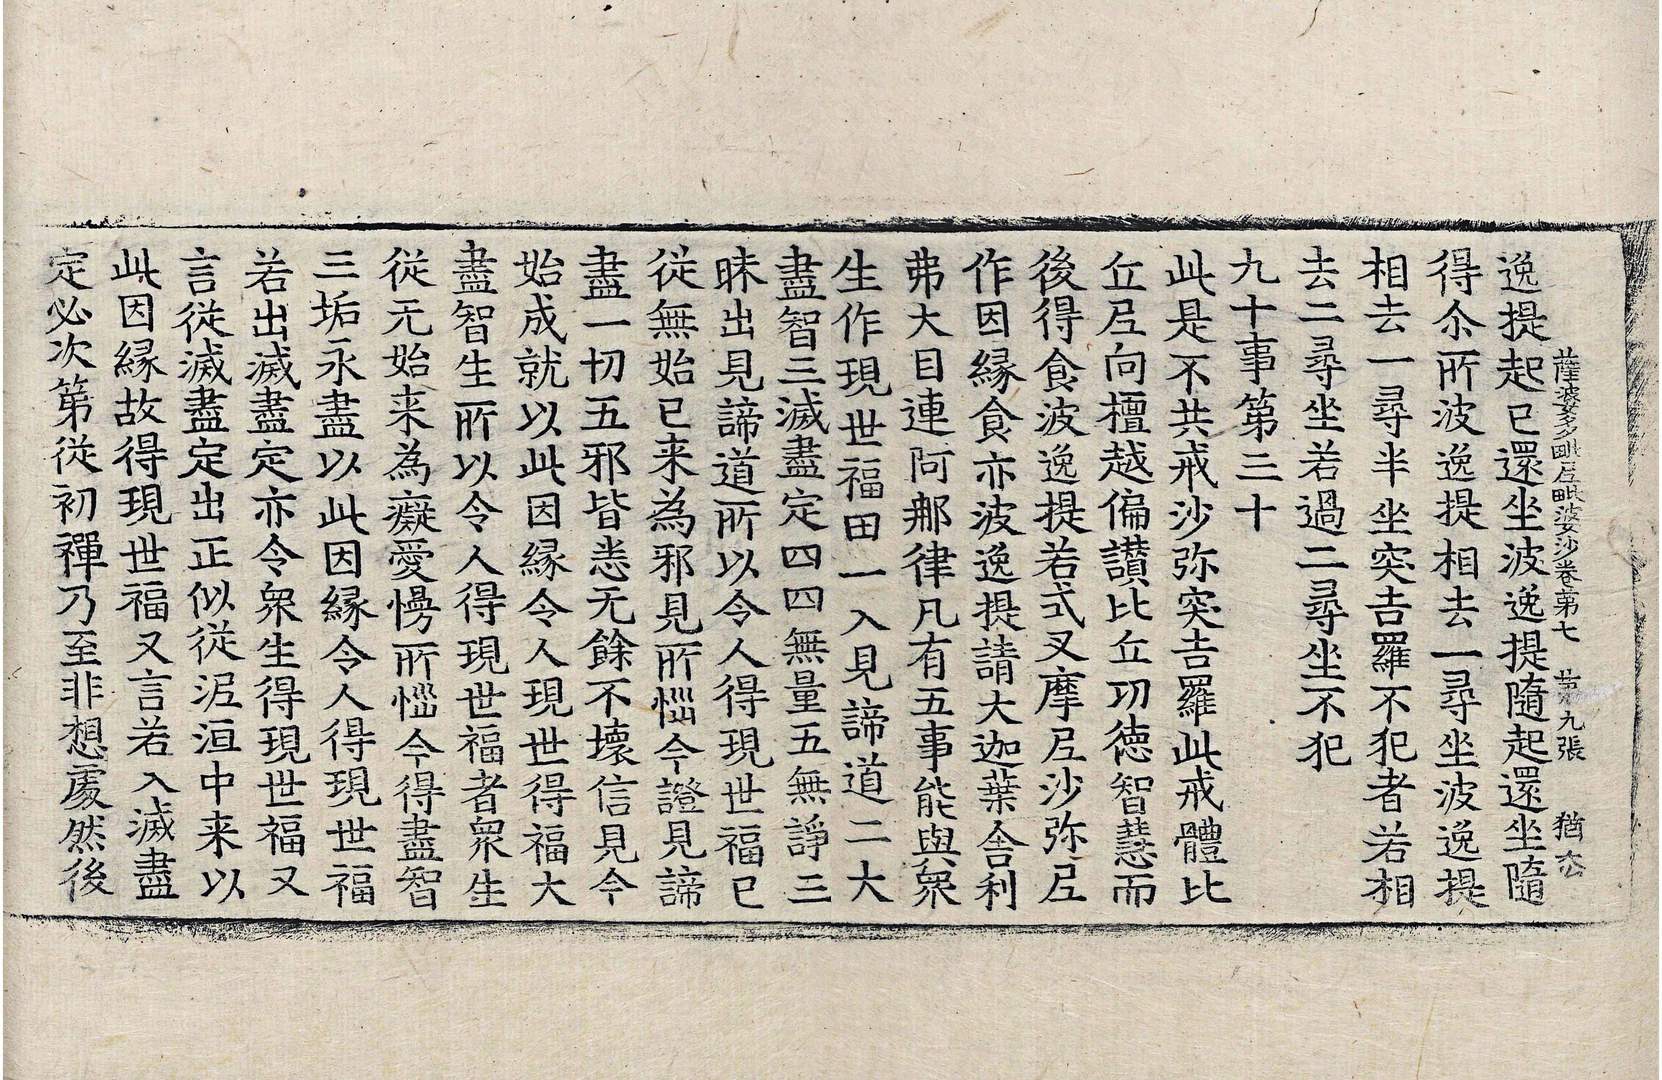 薩婆多毗尼毗婆沙卷第七 第九張 猶
逸提起已還坐波逸提隨起還坐隨
得尒所波逸提相去一尋坐波逸提
相去一尋半坐突吉羅不犯者若相
去二尋坐若過二尋坐不犯
九十事第三十
此是不共戒沙弥突吉羅此戒體比
丘尼向檀越偏讃比丘功徳智慧而
後得食波逸提若式叉摩尼沙弥尼
作因縁食亦波逸提請大迦葉舍利
弗大目連阿那律凡有五事能與衆
生作現世福田一入見諦道二大
盡智三滅盡定四四無量五無諍三
昧出見諦道所以令人得現世福已
從無始已来為邪見所惱今證見諦
盡一切五邪皆悉无餘不壞信見今
始成就以此因縁令人現世得福大
盡智生所以令人得現世福者衆生
從无始来為癡愛慢所惱今得盡智
三垢永盡以此因縁令人得現世福
若出滅盡定亦令衆生得現世福又
言從滅盡定出正似從泥洹中来以
此因縁故得現世福又言若入滅盡
定必次第從初禪乃至非想處然後